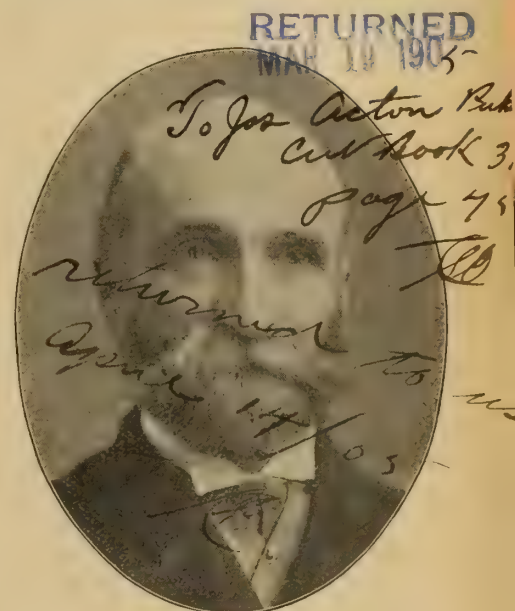 RETURNED
MAR 19 1905
To Jos Acton
Cut Book 3,
page
returned to us
April 14/05